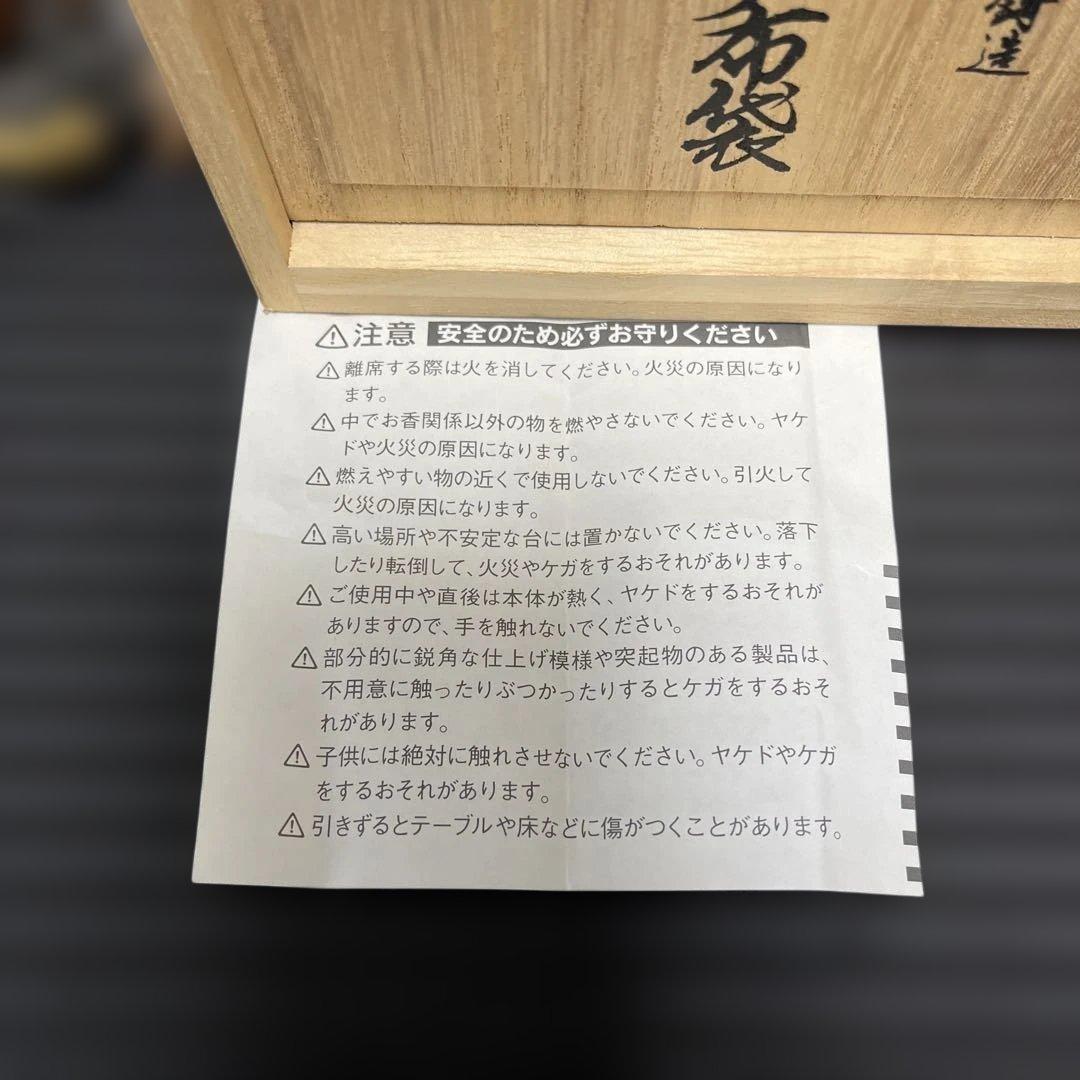 鋳造
布袋
注意 安全のため必ずお守りください
離席する際は火を消してください。火災の原因になり
ます。
中でお香関係以外の物を燃やさないでください。ヤケ
ドや火災の原因になります。
燃えやすい物の近くで使用しないでください。引火して
火災の原因になります。
高い場所や不安定な台には置かないでください。落下
したり転倒して、火災やケガをするおそれがあります。
ご使用中や直後は本体が熱く、ヤケドをするおそれが
ありますので、手を触れないでください。
部分的に鋭角な仕上げ模様や突起物のある製品は、
不用意に触ったりぶつかったりするとケガをするおそ
れがあります。
子供には絶対に触れさせないでください。ヤケドやケガ
をするおそれがあります。
引きずるとテーブルや床などに傷がつくことがあります。